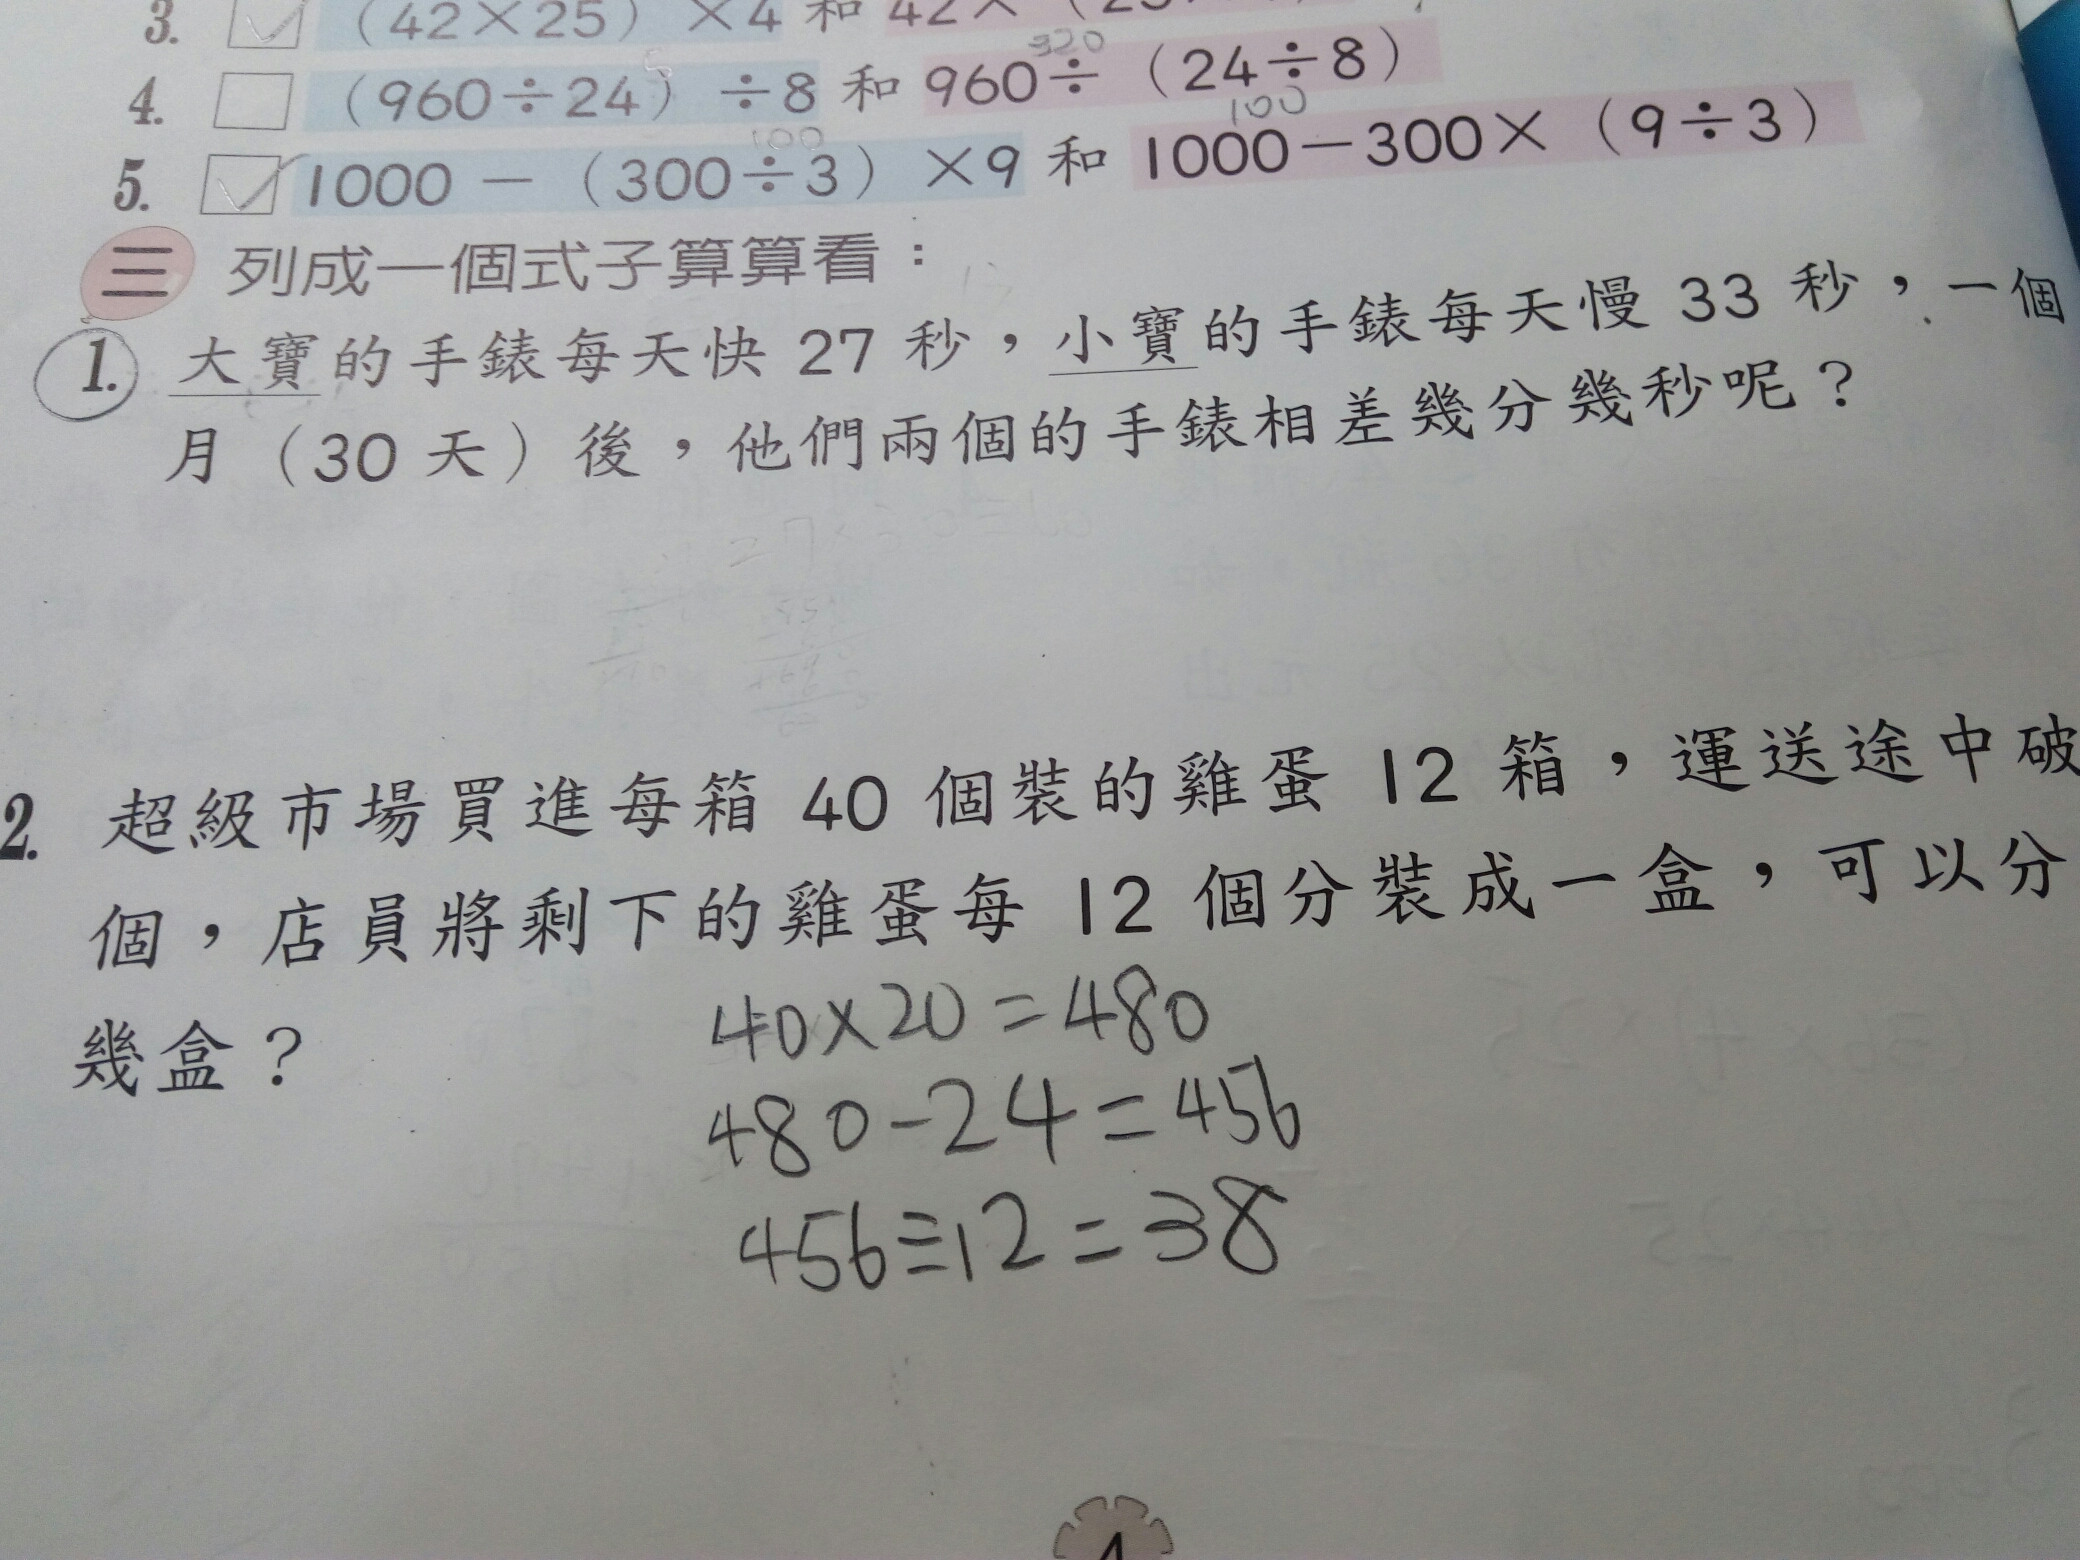 3. (42×25)×4 和 42×
4. (960÷24)÷8 和 960÷(24÷8)
320
5. 1000-(300÷3)×9 和 1000-300×(9÷3)
100 100
三 列成一個式子算算看：
1. 大寶的手錶每天快 27 秒，小寶的手錶每天慢 33 秒，一個
月（30 天）後，他們兩個的手錶相差幾分幾秒呢？
2. 超級市場買進每箱 40 個裝的雞蛋 12 箱，運送途中破
個，店員將剩下的雞蛋每 12 個分裝成一盒，可以分
幾盒？
40×20=480
480-24=456
456÷12=38